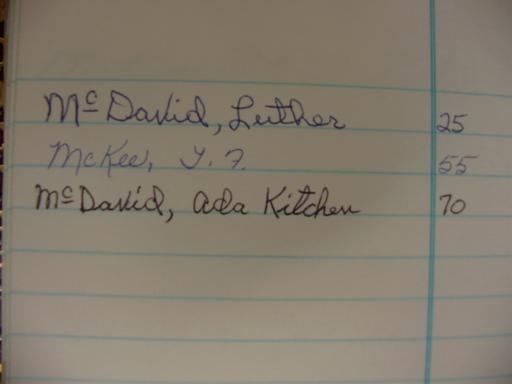 McDavid, Luther 25
McKee, T. F. 55
McDavid, Ada Kitchen 70